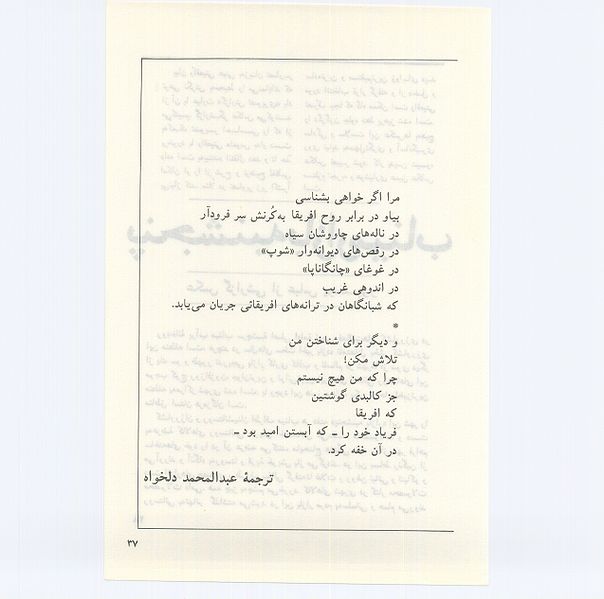 مرا اگر خواهی بشناسی
بیاو در برابر روح افریقا به‌کُرنش سِر فرودآر
در ناله‌های چاووشان سیاه
در رقص‌های دیوانه‌وار «شوپ»
در غوغای «چانگاناپا»
در اندوهی غریب
که شبانگاهان در ترانه‌های افریقائی جریان می‌یابد.
*
و دیگر برای شناختن من
تلاش مکن!
چرا که من هیچ نیستم
جز کالبدی گوشتین
که افریقا
فریاد خود را ـ که آبستن امید بود ـ
در آن خفه کرد.
ترجمهٔ عبدالمحمد دلخواه
۳۷